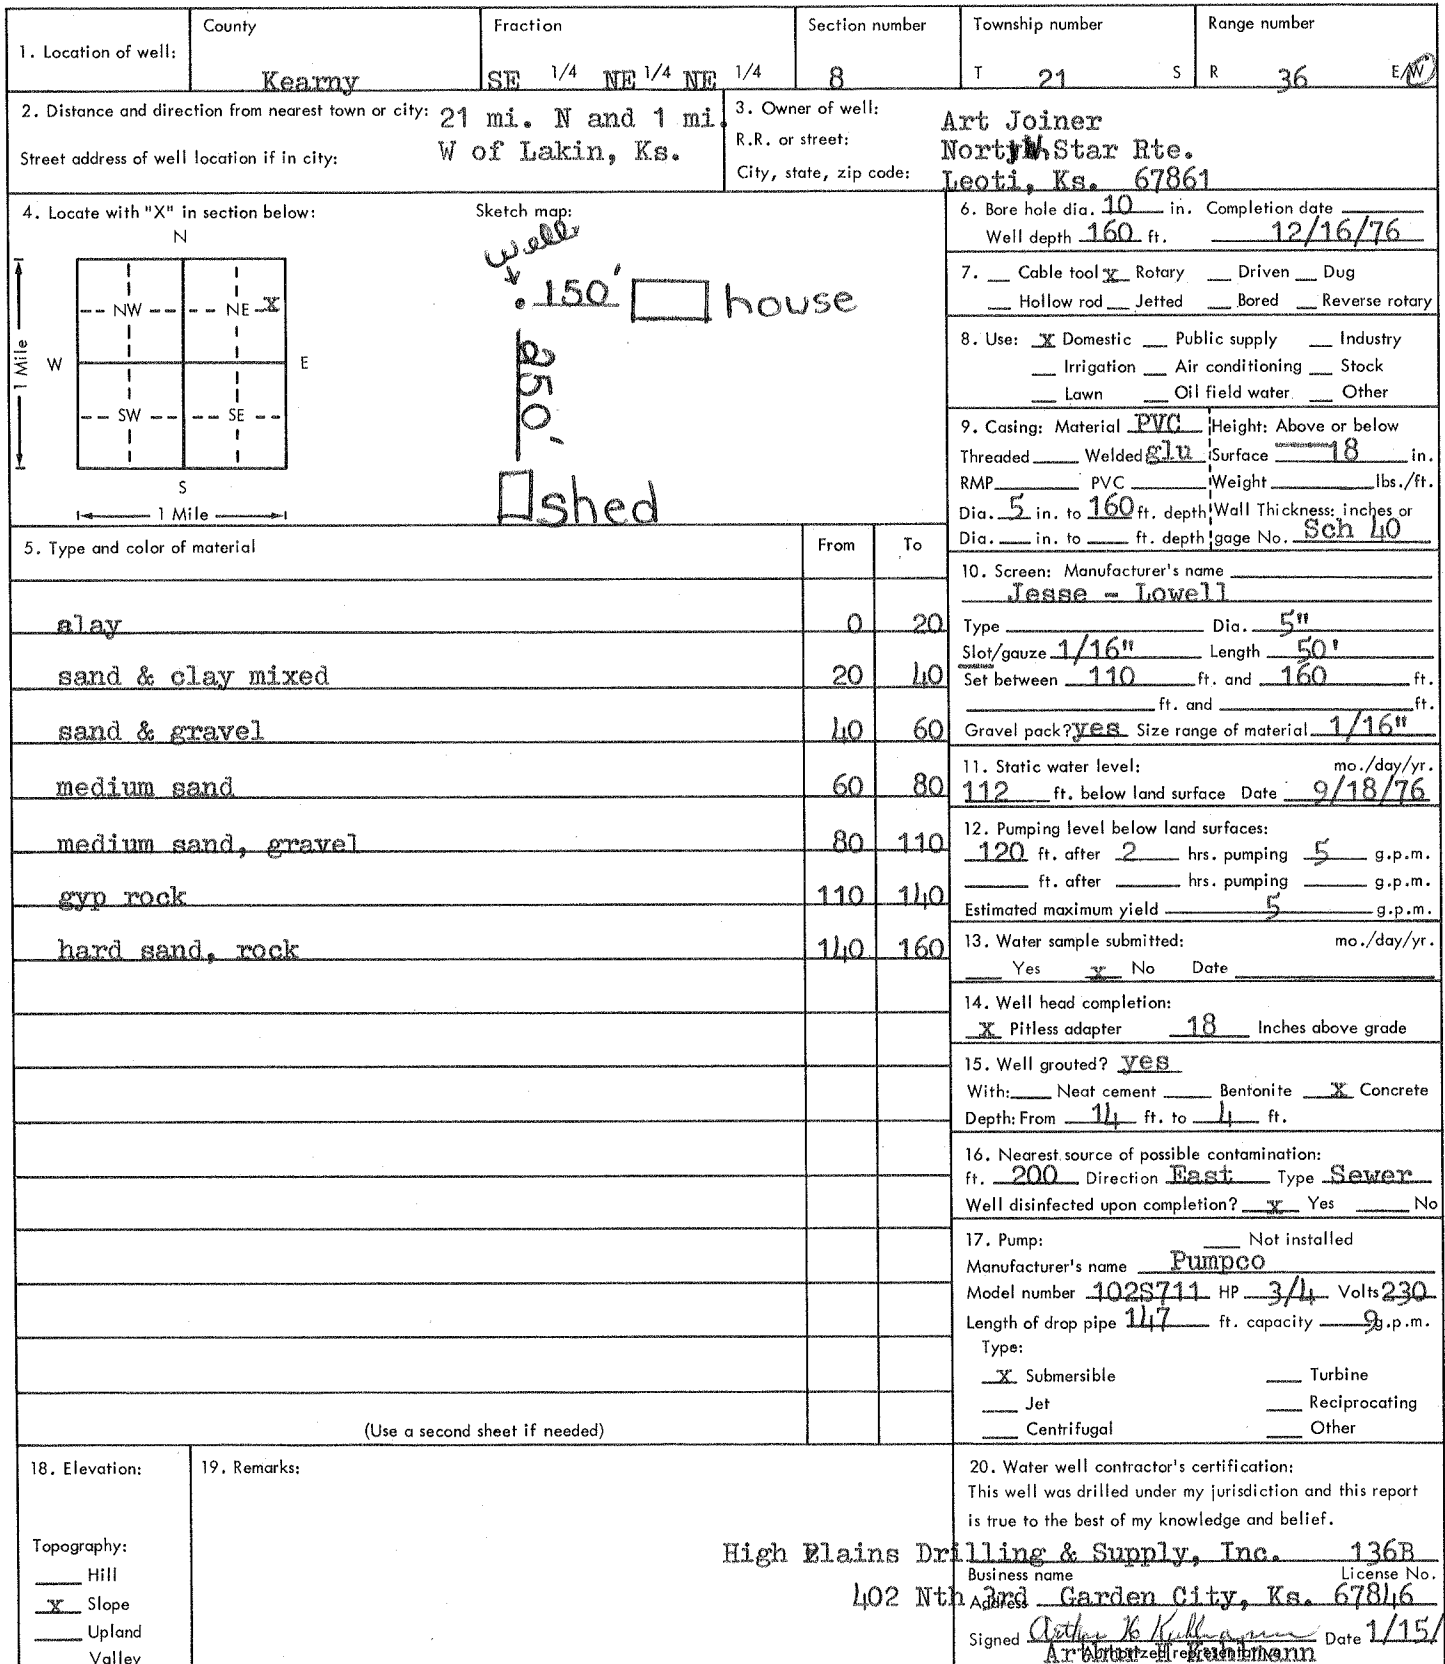 1. Location of well: County Kearny Fraction SE 1/4 NE 1/4 NE 1/4 Section number 8 Township number T 21 S Range number R 36 E/W
2. Distance and direction from nearest town or city: 21 mi. N and 1 mi. W of Lakin, Ks.
Street address of well location if in city:
3. Owner of well: Art Joiner
R.R. or street: North Star Rte.
City, state, zip code: Leoti, Ks. 67861
4. Locate with "X" in section below:
N
NW NE X
W E
SW SE
S
1 Mile
1 Mile
Sketch map:
well
150' house
250'
shed
5. Type and color of material From To
alay 0 20
sand & clay mixed 20 40
sand & gravel 40 60
medium sand 60 80
medium sand, gravel 80 110
gyp rock 110 140
hard sand, rock 140 160
(Use a second sheet if needed)
6. Bore hole dia. 10 in. Completion date
Well depth 160 ft. 12/16/76
7. Cable tool x Rotary Driven Dug
Hollow rod Jetted Bored Reverse rotary
8. Use: x Domestic Public supply Industry
Irrigation Air conditioning Stock
Lawn Oil field water Other
9. Casing: Material PVC Height: Above or below
Threaded Welded glu Surface 18 in.
RMP PVC Weight lbs./ft.
Dia. 5 in. to 160 ft. depth Wall Thickness: inches or
Dia. in. to ft. depth gage No. Sch 40
10. Screen: Manufacturer's name
Jesse - Lowell
Type Dia. 5"
Slot/gauze 1/16" Length 50'
Set between 110 ft. and 160 ft.
ft. and ft.
Gravel pack? yes Size range of material 1/16"
11. Static water level: mo./day/yr.
112 ft. below land surface Date 9/18/76
12. Pumping level below land surfaces:
120 ft. after 2 hrs. pumping 5 g.p.m.
ft. after hrs. pumping g.p.m.
Estimated maximum yield 5 g.p.m.
13. Water sample submitted: mo./day/yr.
Yes x No Date
14. Well head completion:
X Pitless adapter 18 Inches above grade
15. Well grouted? yes
With: Neat cement Bentonite X Concrete
Depth: From 14 ft. to 4 ft.
16. Nearest source of possible contamination:
ft. 200 Direction East Type Sewer
Well disinfected upon completion? x Yes No
17. Pump: Not installed
Manufacturer's name Pumpco
Model number 102S711 HP 3/4 Volts 230
Length of drop pipe 147 ft. capacity 9 g.p.m.
Type:
X Submersible Turbine
Jet Reciprocating
Centrifugal Other
18. Elevation:
Topography:
Hill
X Slope
Upland
Valley
19. Remarks:
20. Water well contractor's certification:
This well was drilled under my jurisdiction and this report
is true to the best of my knowledge and belief.
High Plains Drilling & Supply, Inc. 136B
Business name License No.
402 Nth 3rd Garden City, Ks. 67846
Address
Signed Arthur H Kuhlmann Date 1/15/
Authorized representative
Arthur H Kuhlmann